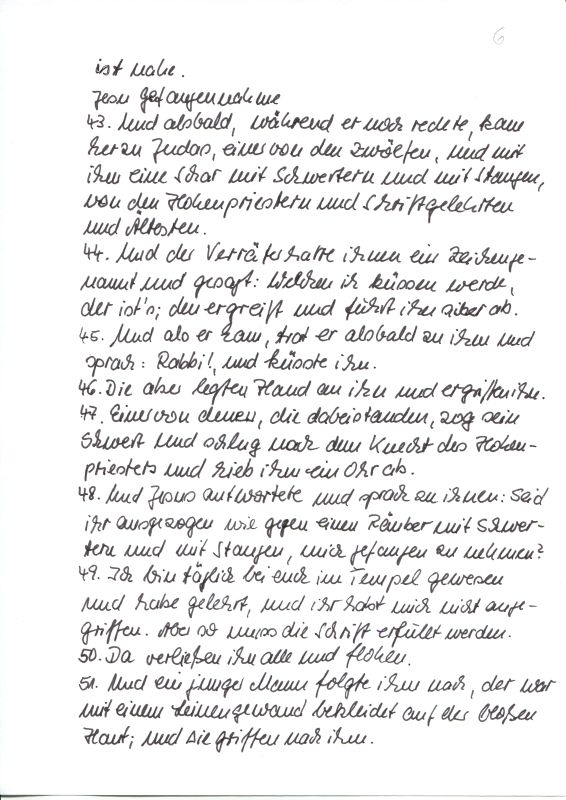 6
ist nahe.
Jesu Gefangennahme
43. Und alsbald, während er noch redete, kam
herzu Judas, einer von den Zwölfen, und mit
ihm eine Schar mit Schwertern und mit Stangen,
von den Hohenpriestern und Schriftgelehrten
und Ältesten.
44. Und der Verräter hatte ihnen ein Zeichen ge-
nannt und gesagt: Welchen ich küssen werde,
der ist's; den ergreift und führt ihn sicher ab.
45. Und als er kam, trat er alsbald zu ihm und
sprach: Rabbi!, und küsste ihn.
46. Die aber legten Hand an ihn und ergriffen ihn.
47. Einer von denen, die dabeistanden, zog sein
Schwert und schlug nach dem Knecht des Hohen-
priesters und hieb ihm ein Ohr ab.
48. Und Jesus antwortete und sprach zu ihnen: Seid
ihr ausgezogen wie gegen einen Räuber mit Schwer-
tern und mit Stangen, mich gefangen zu nehmen?
49. Ich bin täglich bei euch im Tempel gewesen
und habe gelehrt, und ihr habt mich nicht ange-
griffen. Aber so muss die Schrift erfüllt werden.
50. Da verließen ihn alle und flohen.
51. Und ein junger Mann folgte ihm nach, der war
mit einem Leinengewand bekleidet auf der bloßen
Haut; und sie griffen nach ihm.